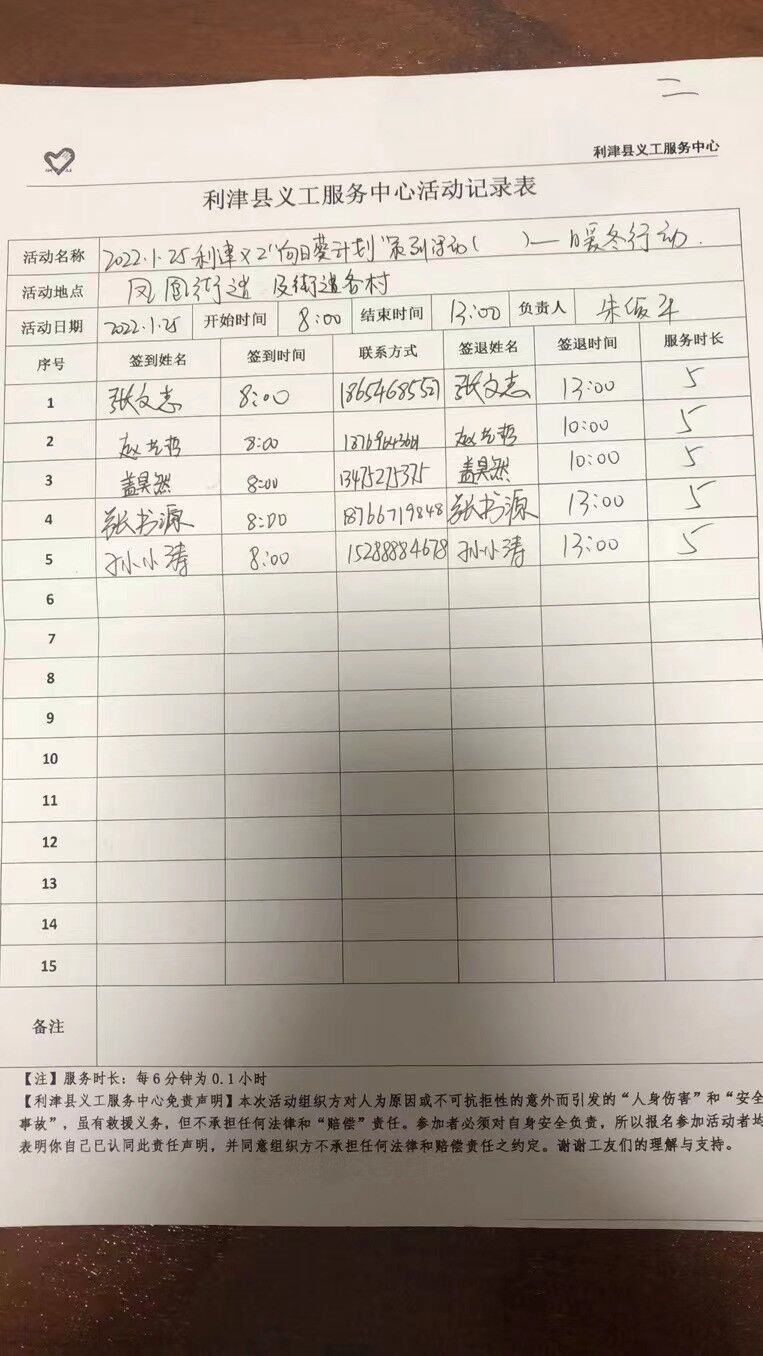 二
利津县义工服务中心
利津县义工服务中心活动记录表
活动名称 2022.1.25利津义工"向日葵计划"系列活动( )—暖冬行动.
活动地点 凤凰街道及街道各村
活动日期 2022.1.25 开始时间 8:00 结束时间 13:00 负责人 朱
序号 签到姓名 签到时间 联系方式 签退姓名 签退时间 服务时长
1 张文志 8:00 18654685521 张文志 13:00 5
2 赵 哲 8:00 赵 哲 10:00 5
3 盖昊然 8:00 13475275375 盖昊然 10:00 5
4 张书源 8:00 18766719848 张书源 13:00 5
5 孙小涛 8:00 15288884678 孙小涛 13:00 5
6
7
8
9
10
11
12
13
14
15
备注
【注】服务时长：每6分钟为0.1小时
【利津县义工服务中心免责声明】本次活动组织方对人为原因或不可抗拒性的意外而引发的“人身伤害”和“安全
事故”，虽有救援义务，但不承担任何法律和“赔偿”责任。参加者必须对自身安全负责，所以报名参加活动者均
表明你自己已认同此责任声明，并同意组织方不承担任何法律和赔偿责任之约定。谢谢工友们的理解与支持。